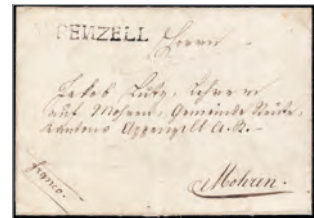 PENZELL Herrn
Jakob Lutz, Lehrer
auf Mohren, Gemeinde Reute,
Kantons Appenzell A. R. -
franco.
Mohren.